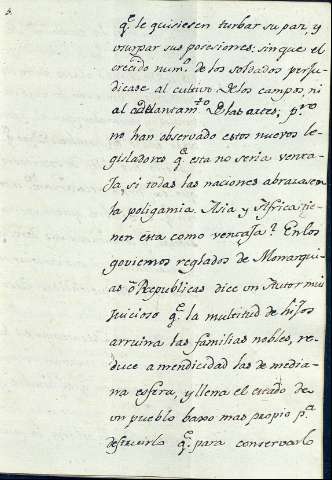 qᵉ le quisiesen turbar su paz, y
vsurpar sus posesiones: sin que el
crecido numº. de los soldados perju-
dicase al cultivo de los campos, ni
al adelantamᵗº de las artes; pᵉro
no han observado estos nuevos le-
gisladores qᵉ esta no seria venta-
ja, si todas las naciones abrazasen
la poligamia Asia y Africa tie-
nen esta como ventaja? En los
goviernos reglados de Monarqui-
as ò Republicas dice un Autor mui
juicioso qᵉ la multitud de hijos
arruina las familias nobles, re-
duce a mendicidad las de media-
na esfera, y llena el estado de
vn pueblo baxo mas propio pᵃ
destruirlo qᵉ para conservarlo